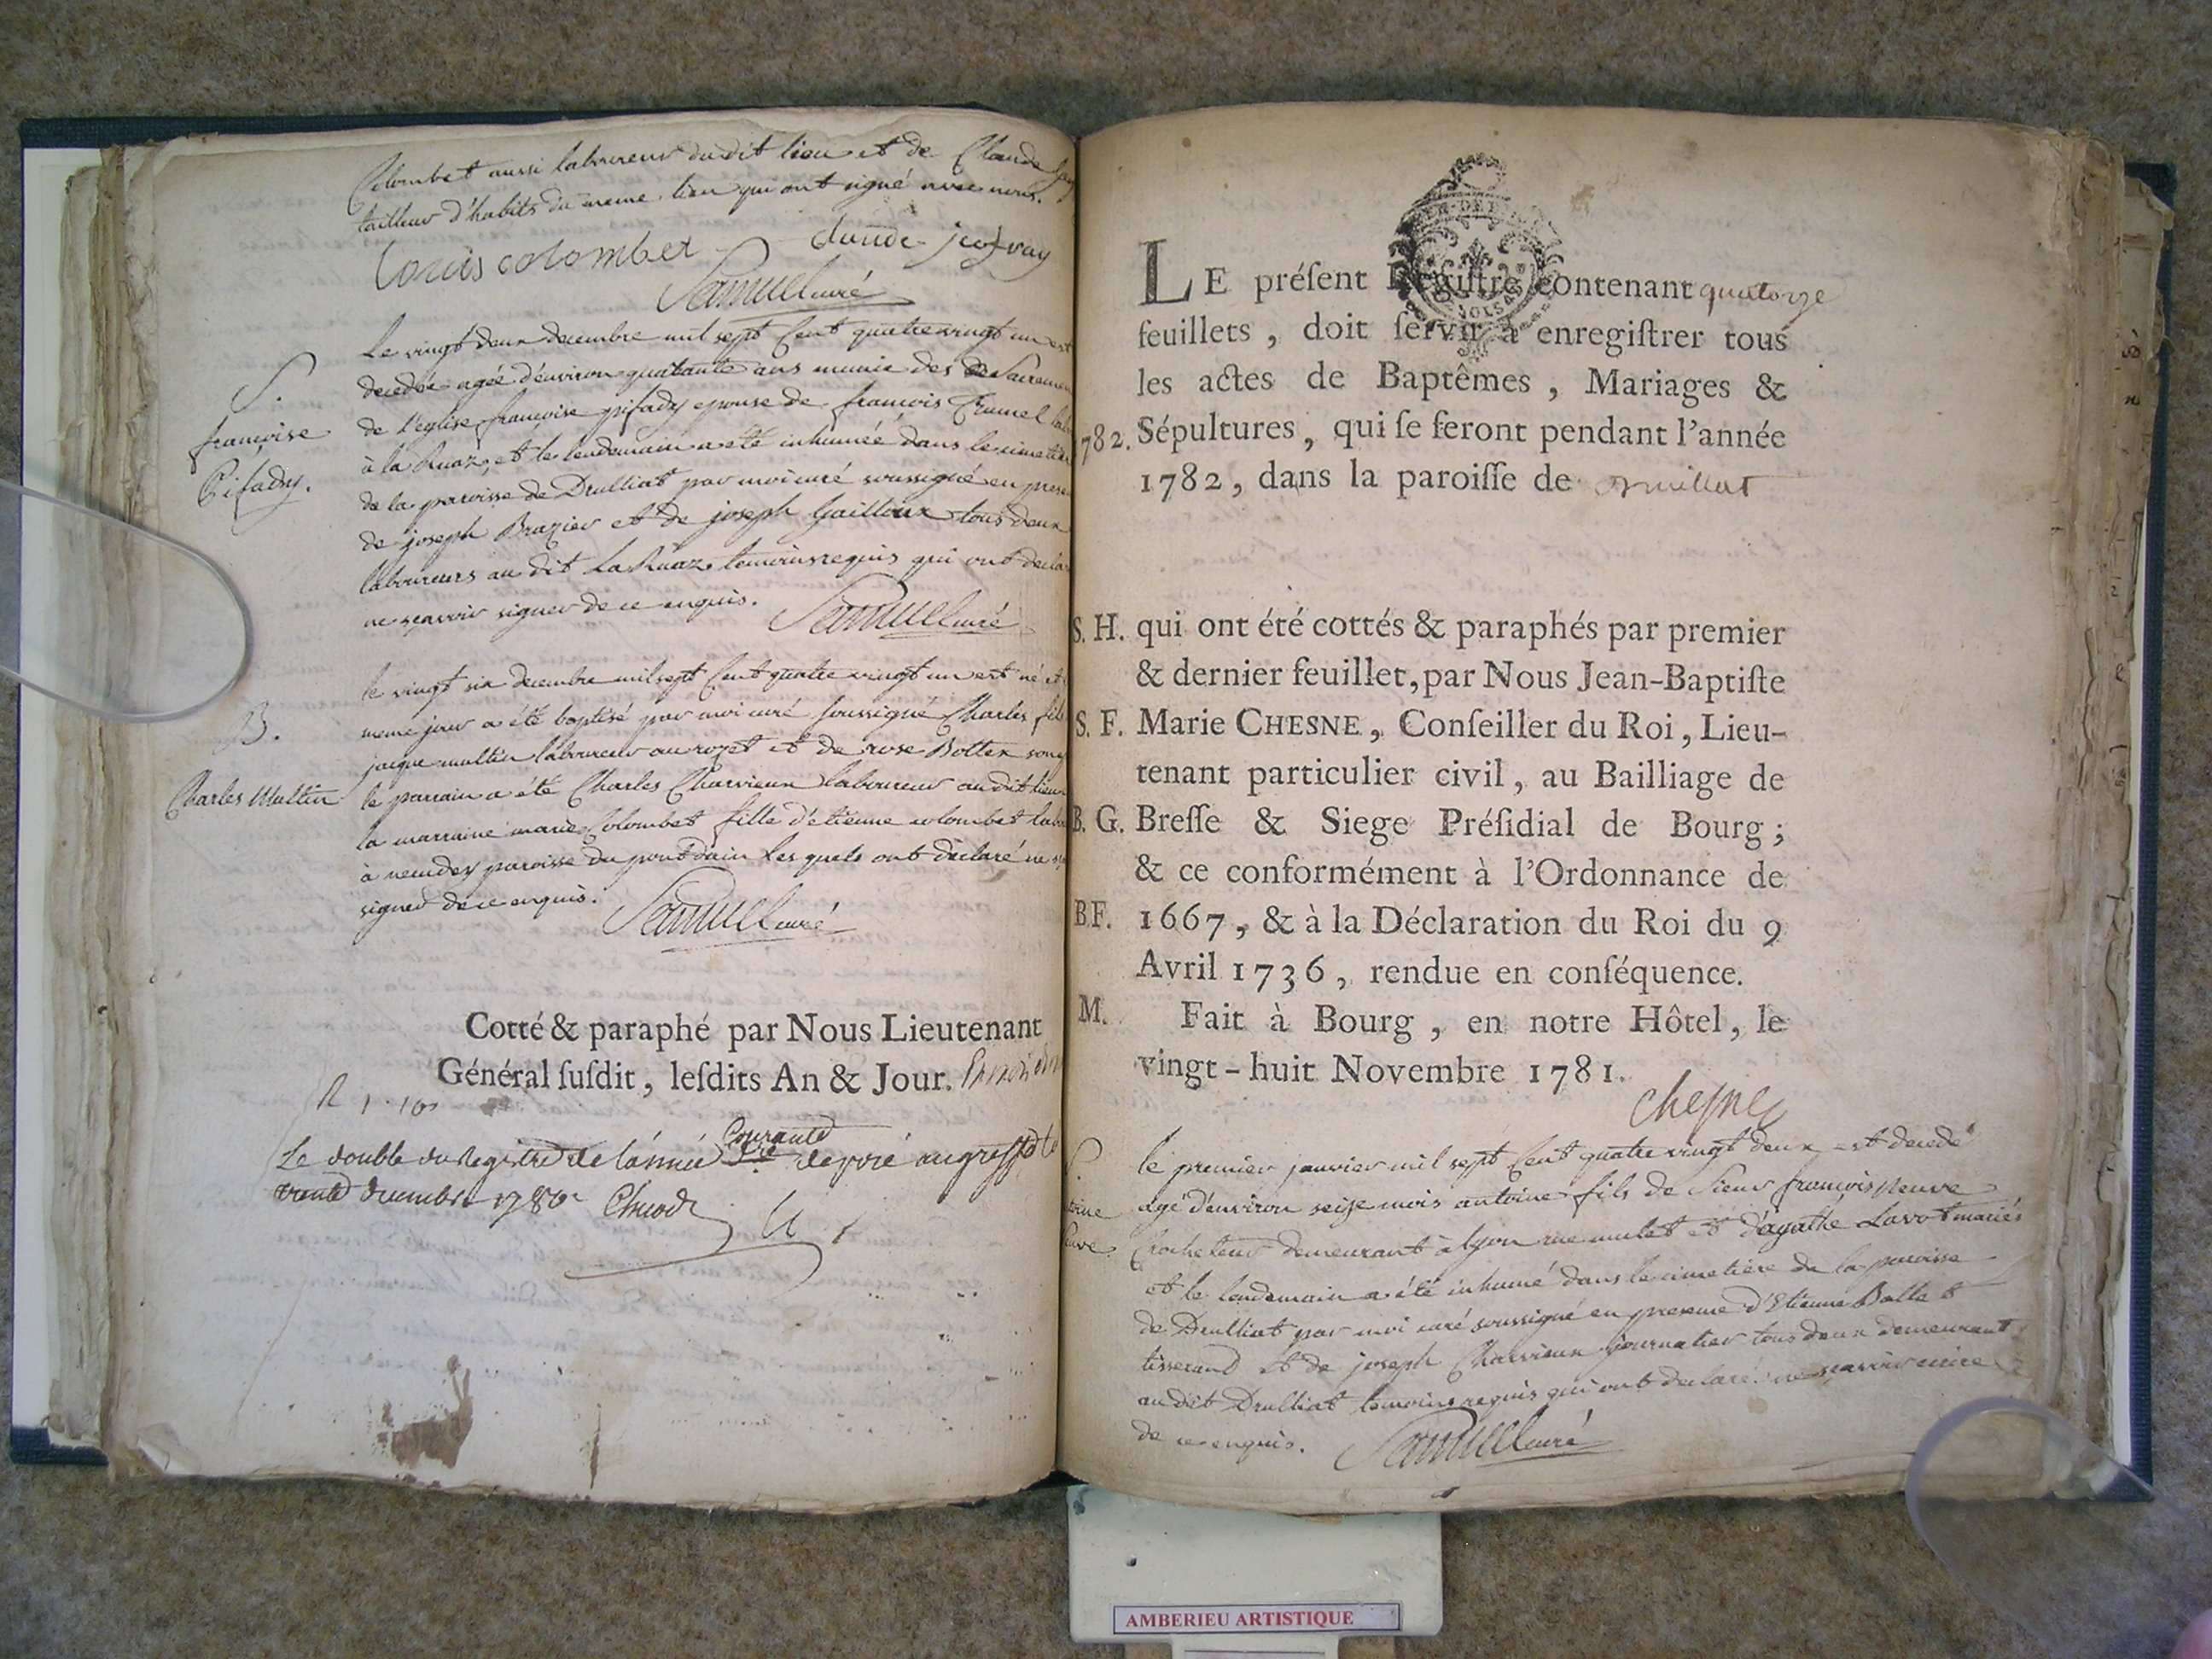 Colombet aussi laboureur dudit lieu et de Claude
tailleur d'habits du meme lieu qui ont signé avec nous.
louis colombet claude jeofray
Samuel curé
Le vingt deux decembre mil sept Cent quatre vingt un est
S.
decedée agée d'environ quatante ans munie des Sacremen
de l'eglise francoise pifady epouse de francois
francoise
à la Ruaz, et le lendemain a eté inhumée dans le cimetier
Pifady.
de la paroisse de Drulliat par moi curé soussigné en presen
de joseph Brazier et de joseph Gailloux tous deux
laboureurs au dit La Ruaz temoins requis qui ont decla
ne sçavoir signer de ce enquis.
Samuel curé
le vingt six decembre mil sept Cent quatre vingt un est né et
B.
meme jour a été baptisé par moi curé soussigné Charles fils
jacque multin laboureur au rozet et de rose Bollex
Charles Multin
le parrain a été Charles Charvieux laboureur au dit lieu
la marraine marie Colombet fille d'etienne colombet labo
à neudey paroisse du pont dain les quels ont déclaré ne
signer de ce enquis.
Samuel curé
Cotté & paraphé par Nous Lieutenant
Général ſuſdit, leſdits An & Jour.
R 1. 10
Le double du Registre de l'année Courante deposé au greffe le
trente decembre 178
LE préſent Regiſtre contenant quatorze
feuillets, doit ſervir à enregiſtrer tous
les actes de Baptêmes, Mariages &
782. Sépultures, qui ſe feront pendant l'année
1782, dans la paroiſſe de Druillat
S. H. qui ont été cottés & paraphés par premier
& dernier feuillet, par Nous Jean-Baptiſte
S. F. Marie CHESNE, Conſeiller du Roi, Lieu-
tenant particulier civil, au Bailliage de
B. G. Breſſe & Siege Préſidial de Bourg;
& ce conformément à l'Ordonnance de
B F. 1667, & à la Déclaration du Roi du 9
Avril 1736, rendue en conſéquence.
M. Fait à Bourg, en notre Hôtel, le
vingt-huit Novembre 1781.
Chesne
le premier janvier mil sept Cent quatre vingt deux est decedé
toine agé d'environ seize mois antoine fils de Sieur francois Neuve
euve Crocheteur demeurant à lyon rue mulet et d'agathe Lavot mariés
et le lendemain a été inhumé dans le cimetière de la paroisse
de Drulliat par moi curé soussigné en presence d'Etienne Ballet
tisserand et de joseph Charvieux journalier tous deux demeurant
au dit Drulliat temoins requis qui ont declaré ne sçavoir ecrire
de ce enquis. Samuel curé
AMBERIEU ARTISTIQUE